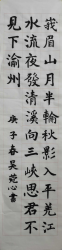 峩眉山月半輪秋影入平羌江
水流夜發清溪向三峡思君不
見下渝州 庚子春吴苑心書